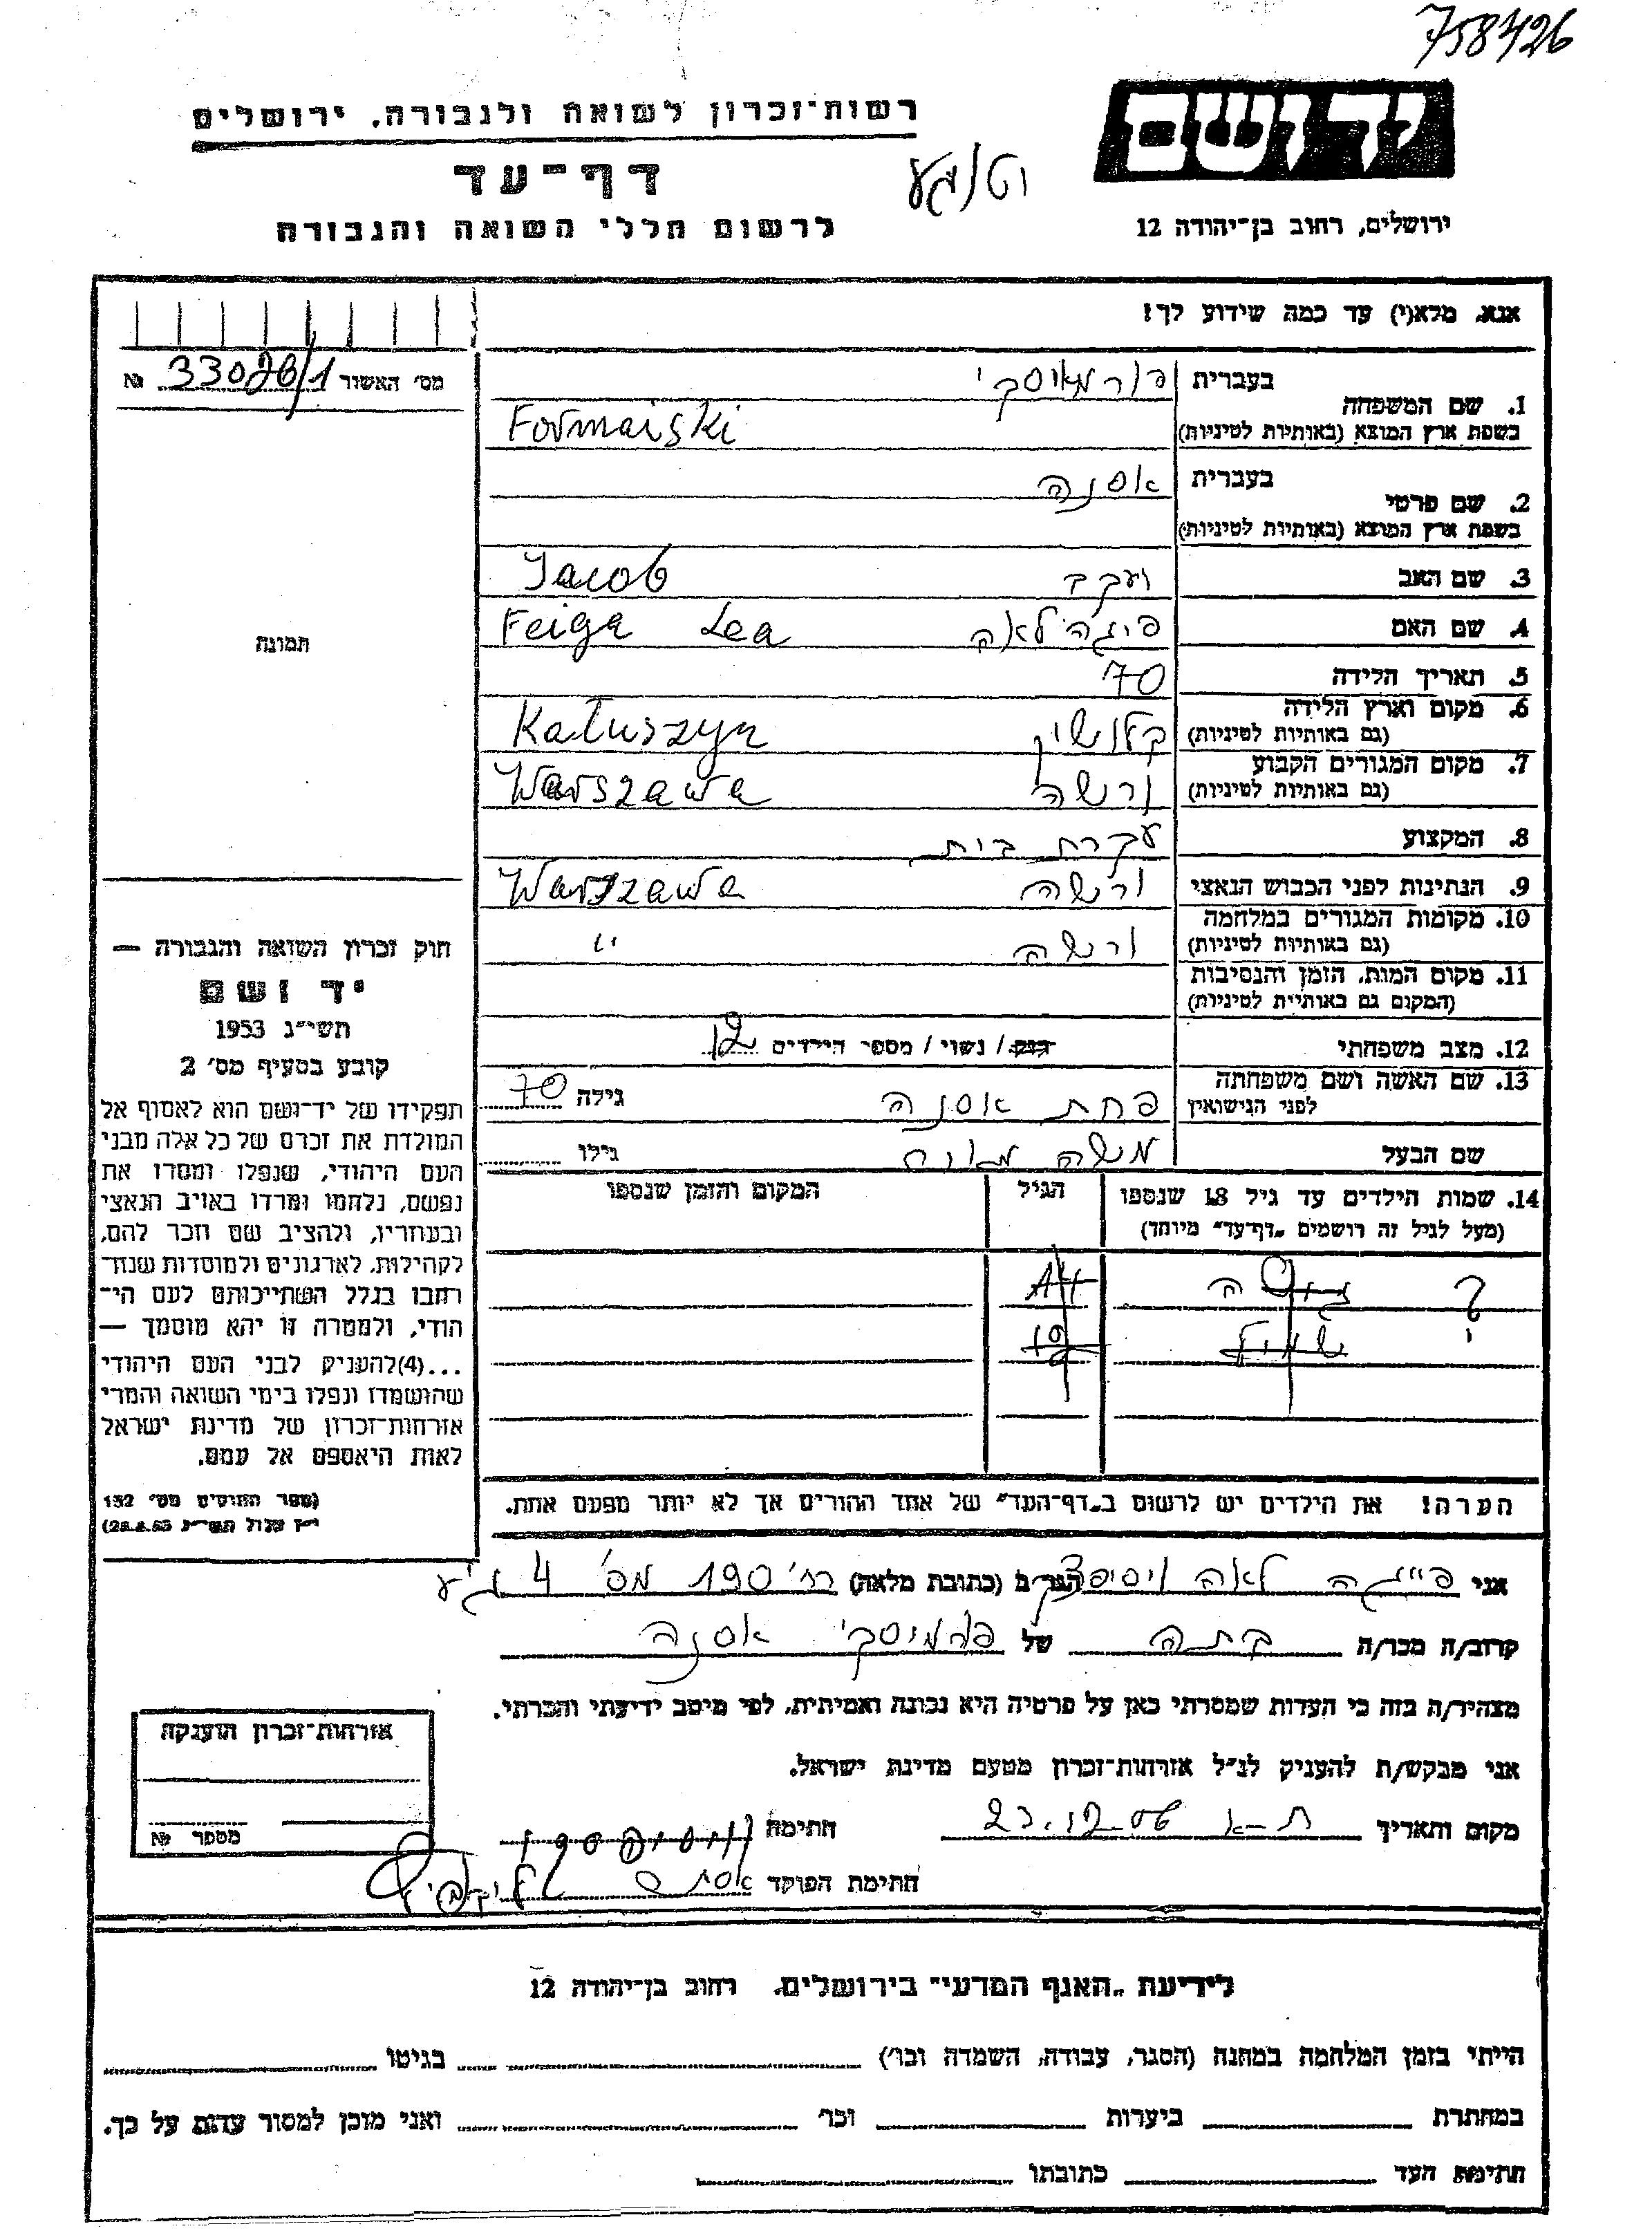 758426
רשות-זכרון לשואה ולגבורה, ירושלים
יד ושם
דף-עד
לרשום חללי השואה והגבורה
ירושלים, רחוב בן-יהודה 12
אנא, מלא(י) עד כמה שידוע לך!
מס׳ האשור № 33026/1
בעברית
1. שם המשפחה
בשפת ארץ המוצא (באותיות לטיניות) Formaiski
בעברית אסנה
2. שם פרטי
בשפת ארץ המוצא (באותיות לטיניות)
3. שם האב יעקב Jacob
4. שם האם פיגה לאה Feiga Lea
5. תאריך הלידה 70
6. מקום וארץ הלידה
(גם באותיות לטיניות) קלושין Kałuszyn
7. מקום המגורים הקבוע
(גם באותיות לטיניות) ורשה Warszawa
8. המקצוע עקרת בית
9. הנתינות לפני הכבוש הנאצי ורשה Warszawa
10. מקומות המגורים במלחמה
(גם באותיות לטיניות) ורשה "
11. מקום המות, הזמן והנסיבות
(המקום גם באותיות לטיניות)
12. מצב משפחתי רווק / נשוי / מספר הילדים 12
13. שם האשה ושם משפחתה
לפני הנישואין פחת אסנה גילה 70
שם הבעל משה גילו
14. שמות הילדים עד גיל 18 שנספו הגיל המקום והזמן שנספו
(מעל לגיל זה רושמים „דף-עד" מיוחד)
?
הערה! את הילדים יש לרשום ב„דף-העד" של אחד ההורים אך לא יותר מפעם אחת.
תמונה
חוק זכרון השואה והגבורה —
יד ושם
תשי״ג 1953
קובע בסעיף מס׳ 2
תפקידו של יד-ושם הוא לאסוף אל
המולדת את זכרם של כל אלה מבני
העם היהודי, שנפלו ומסרו את
נפשם, נלחמו ומרדו באויב הנאצי
ובעוזריו, ולהציב שם וזכר להם,
לקהילות, לארגונים ולמוסדות שנח-
רבו בגלל השתייכותם לעם הי-
הודי, ולמטרה זו יהא מוסמך —
...(4)להעניק לבני העם היהודי
שהושמדו ונפלו בימי השואה והמרי
אזרחות-זכרון של מדינת ישראל
לאות היאספם אל עמם.
(ספר החוקים מס׳ 132
י״ז אלול תשי״ג 28.8.53)
אני פייגה לאה הגר/ה (כתובת מלאה) רח׳ 190 מס׳ 4
קרוב/ה מכר/ה בתה של אסנה
מצהיר/ה בזה כי העדות שמסרתי כאן על פרטיה היא נכונה ואמיתית, לפי מיטב ידיעתי והכרתי.
אני מבקש/ת להעניק לנ״ל אזרחות-זכרון מטעם מדינת ישראל.
מקום ותאריך ת-א 23.12.56 חתימה
חתימת הפוקד אסתר
אזרחות-זכרון הוענקה
מספר №
לידיעת „האגף המדעי" בירושלים, רחוב בן-יהודה 12
הייתי בזמן המלחמה במחנה (הסגר, עבודה, השמדה וכו׳) בגיטו
במחתרת ביערות וכו׳ ואני מוכן למסור עדות על כך.
חתימת העד כתובתו